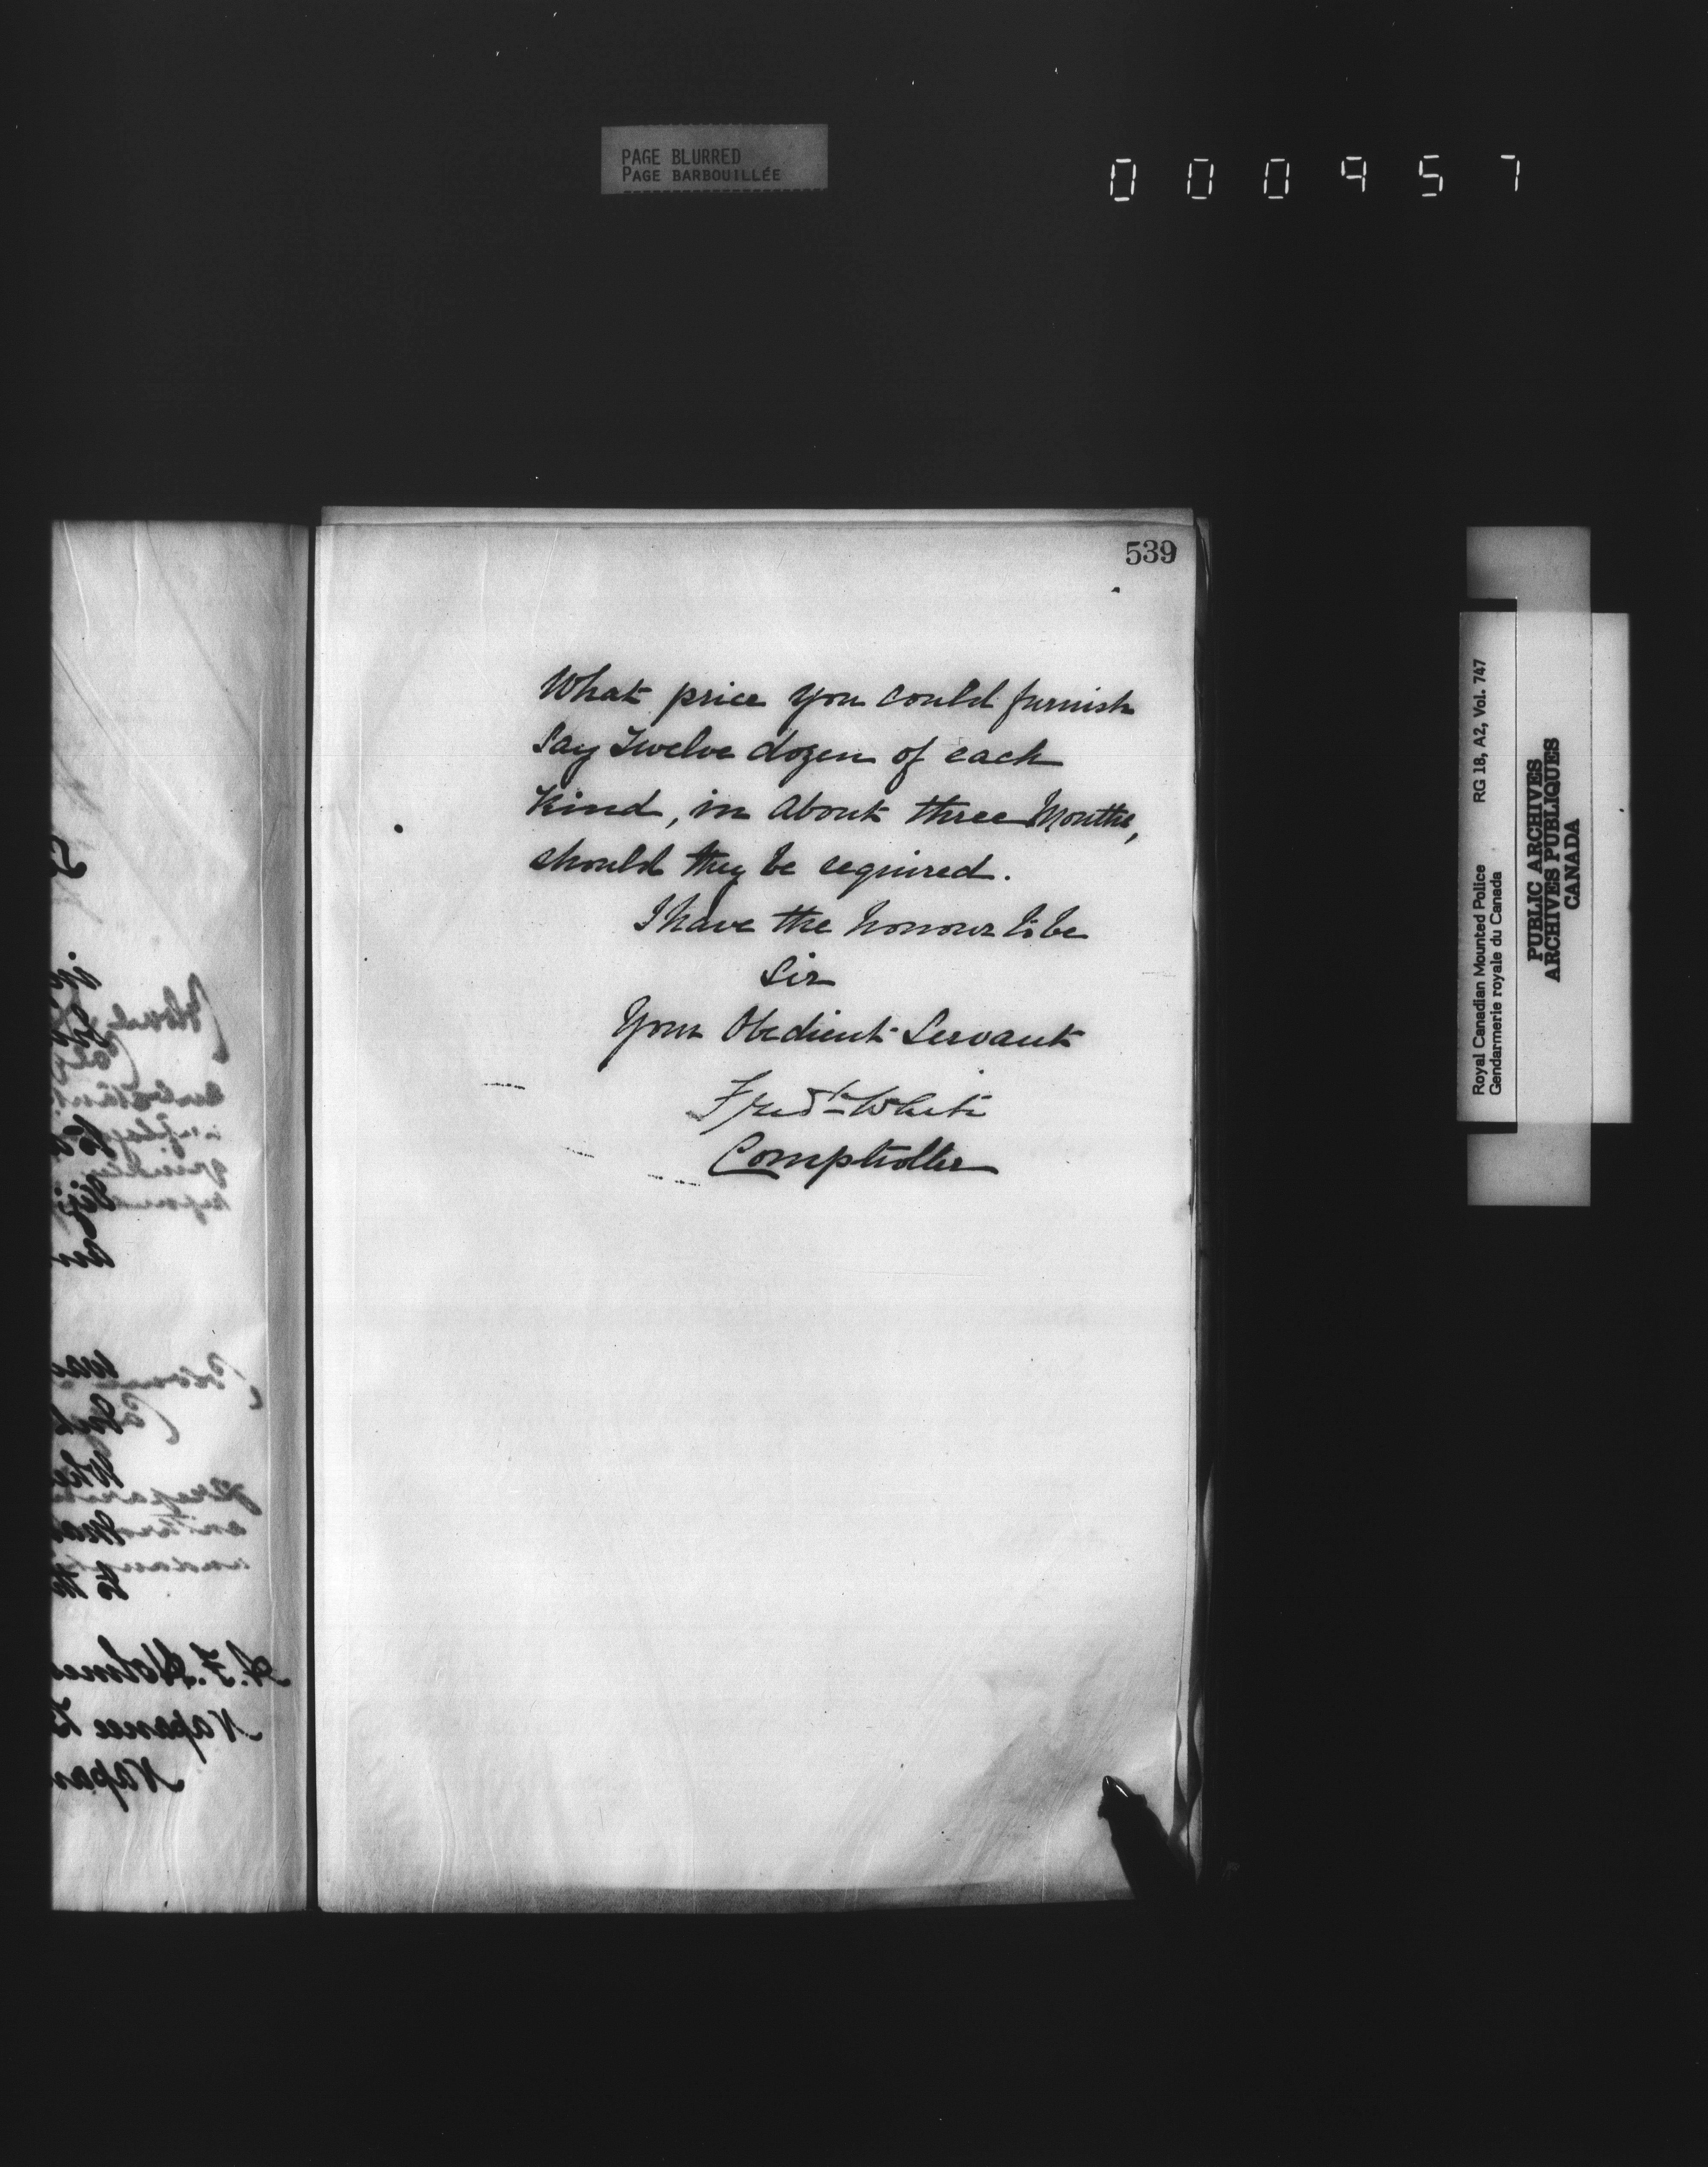 PAGE BLURRED
PAGE BARBOUILLÉE
000957
539
What price you could furnish
Say Twelve dozen of each
Kind, in about three Months,
should they be required.
I have the honour to be
Sir
Your Obedient Servant
Fredk White
Comptroller
A.F. Holmes
Napanee
Royal Canadian Mounted Police RG 18, A2, Vol. 747
Gendarmerie royale du Canada
PUBLIC ARCHIVES
ARCHIVES PUBLIQUES
CANADA